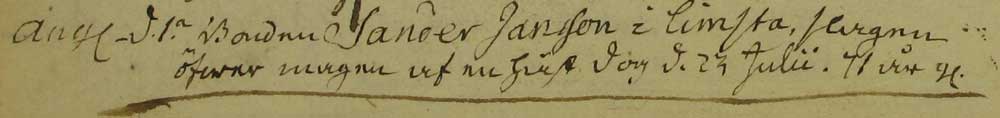 Aug. d. 1. Bonden Sander Janson i Limsta, slagen
öfwer magen af en häst dog d. 23 Julii. 71 år g.